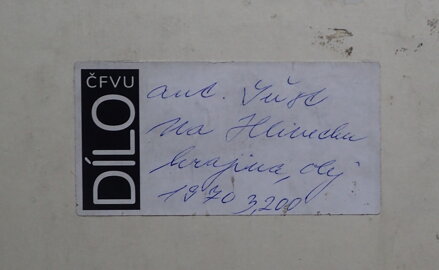 ČFVU
DÍLO
aut. Júst
Na Hlinecku
krajina, olej
1970 3,200